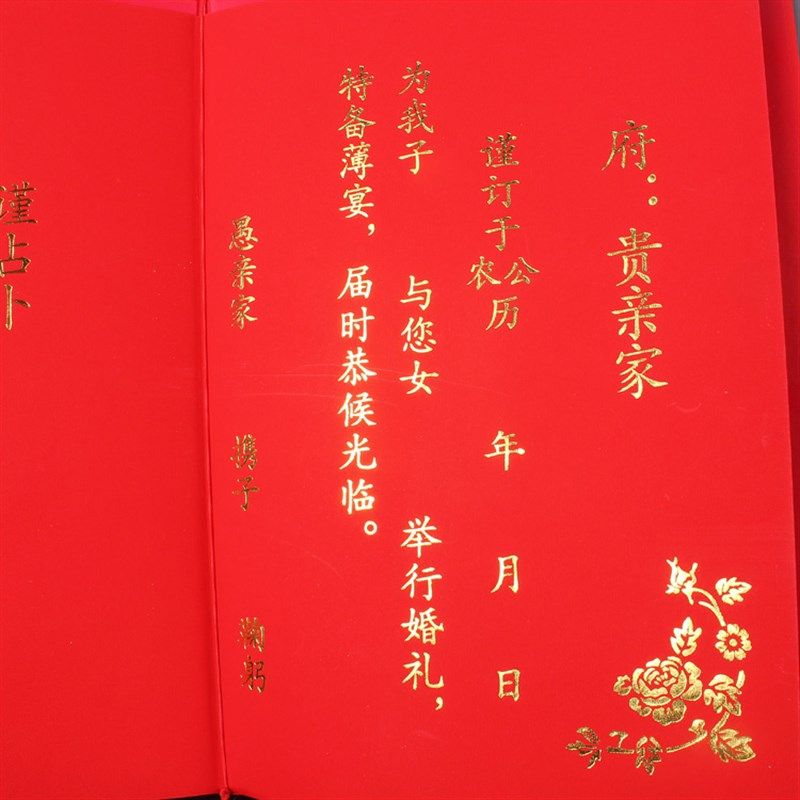 府：贵亲家
谨订于公农历 年 月 日
为我子 与您女 举行婚礼，
特备薄宴，届时恭候光临。
愚亲家 携子 鞠躬
谨占卜